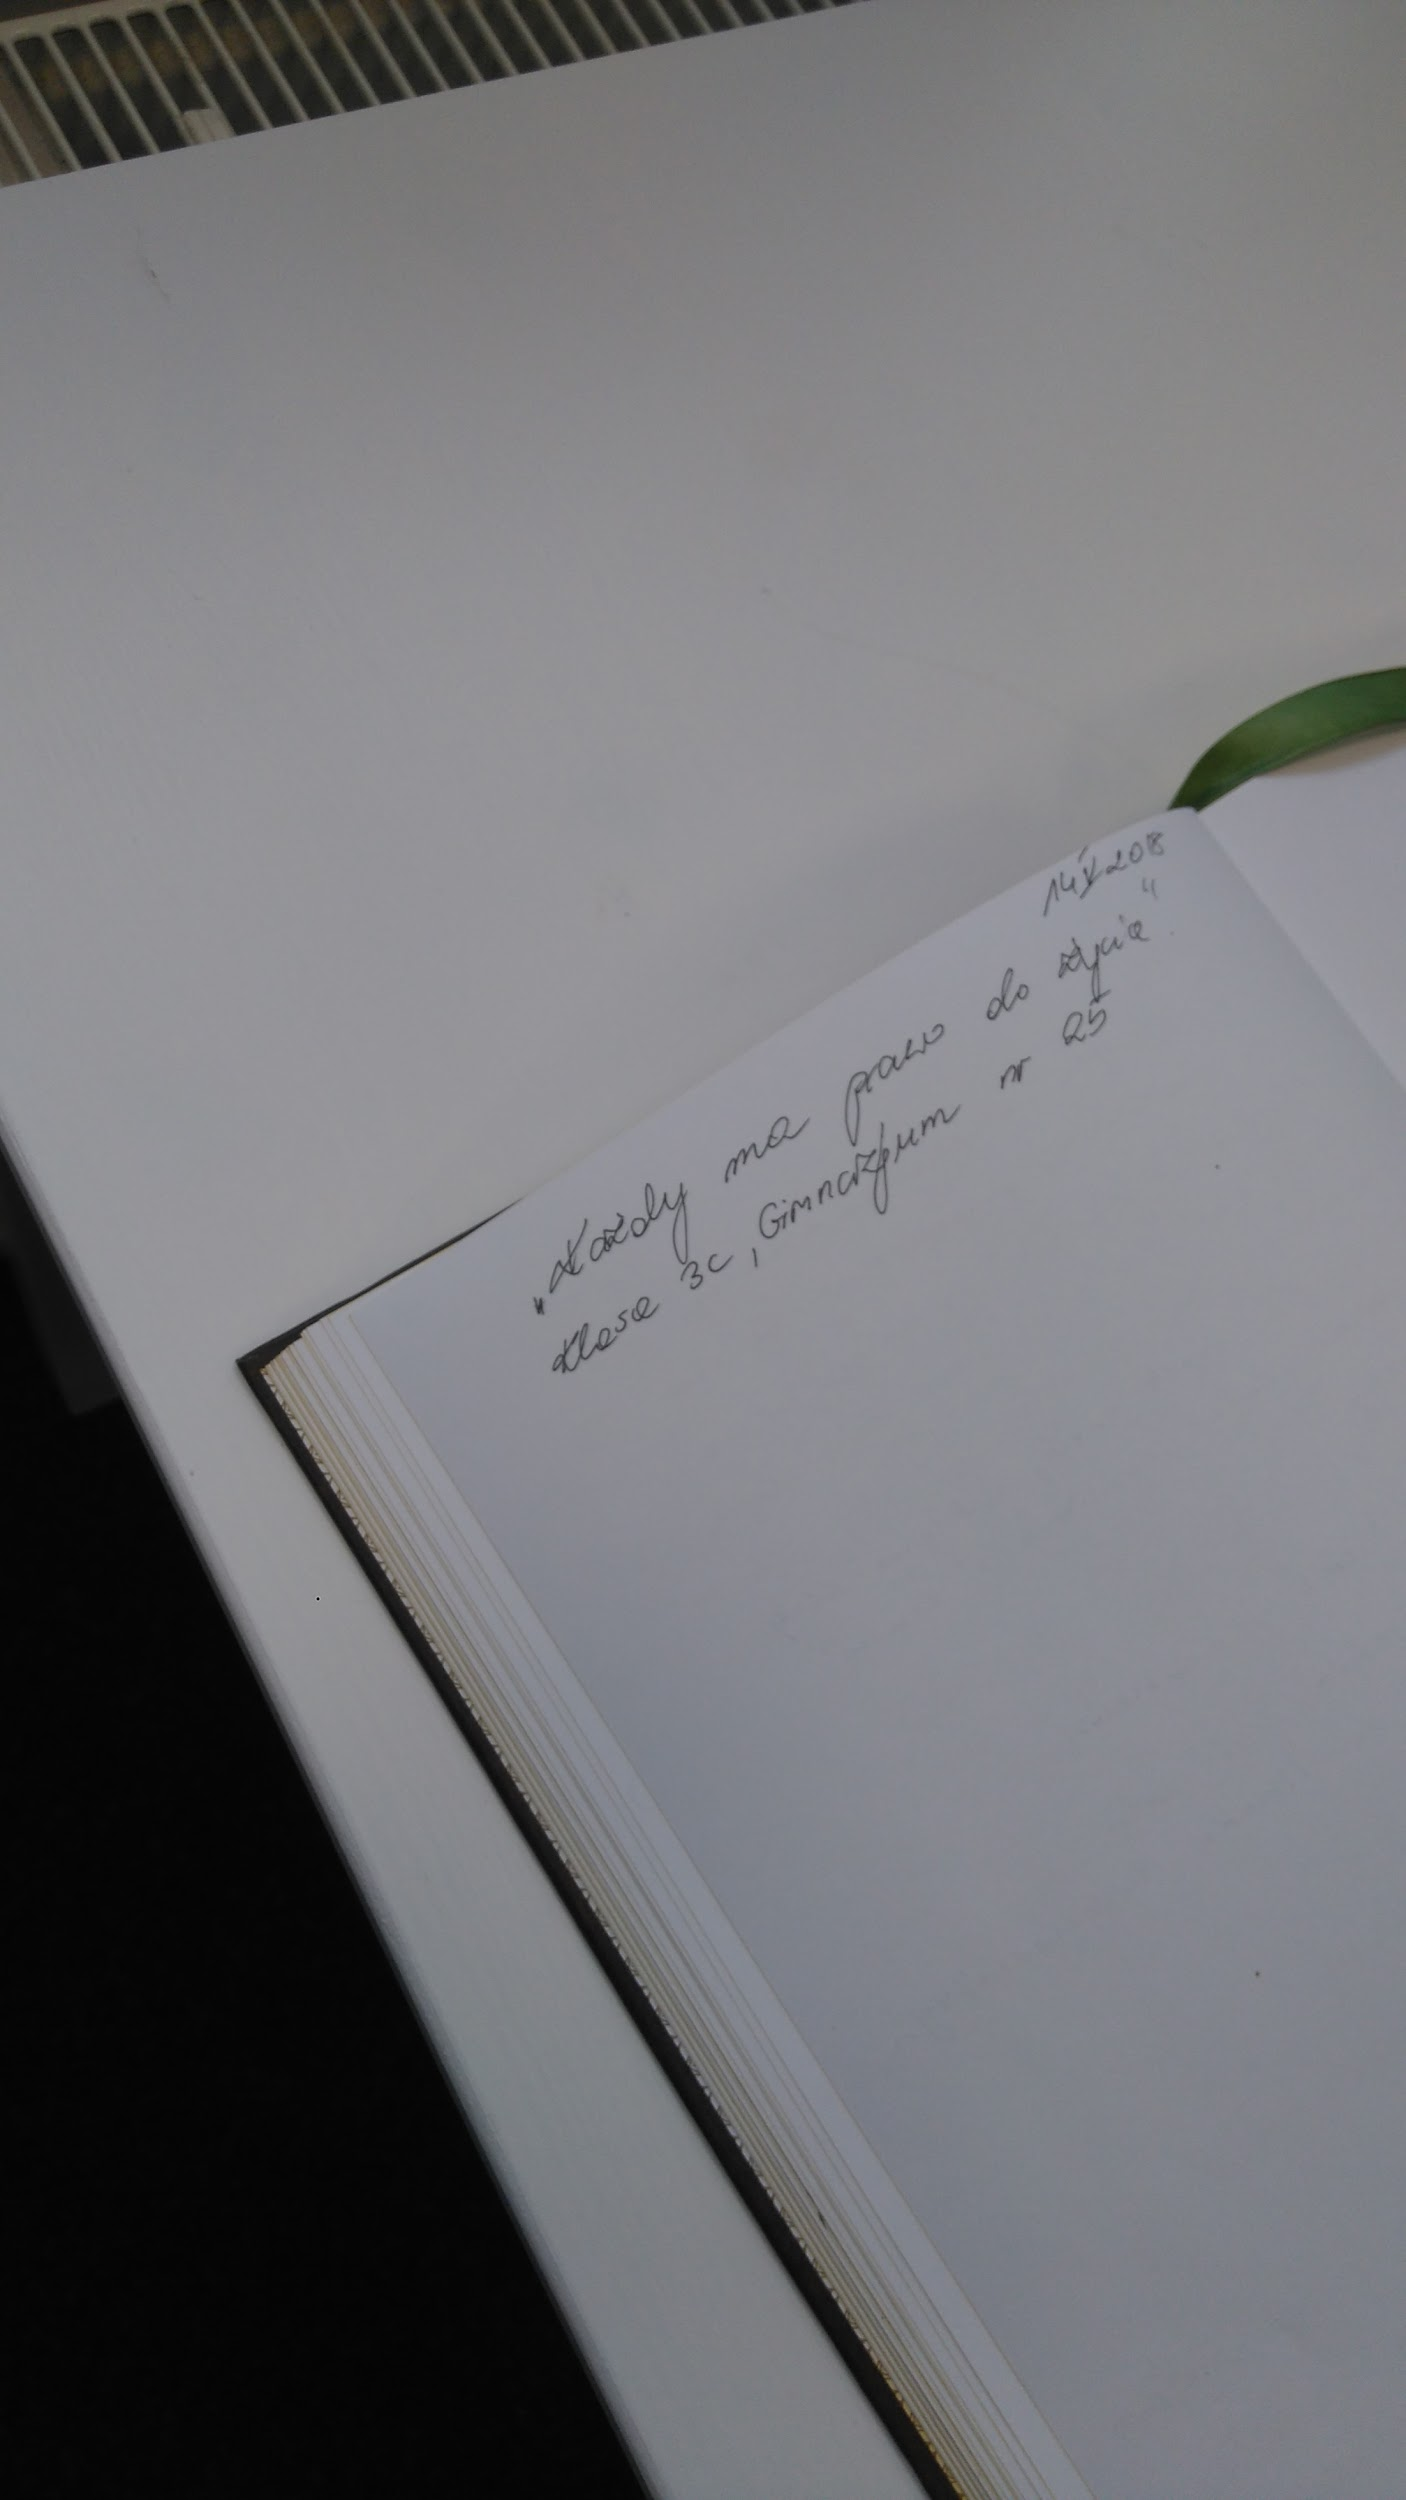 14 V 2018
„Każdy ma prawo do życia".
Klasa 3c, Gimnazjum nr 25